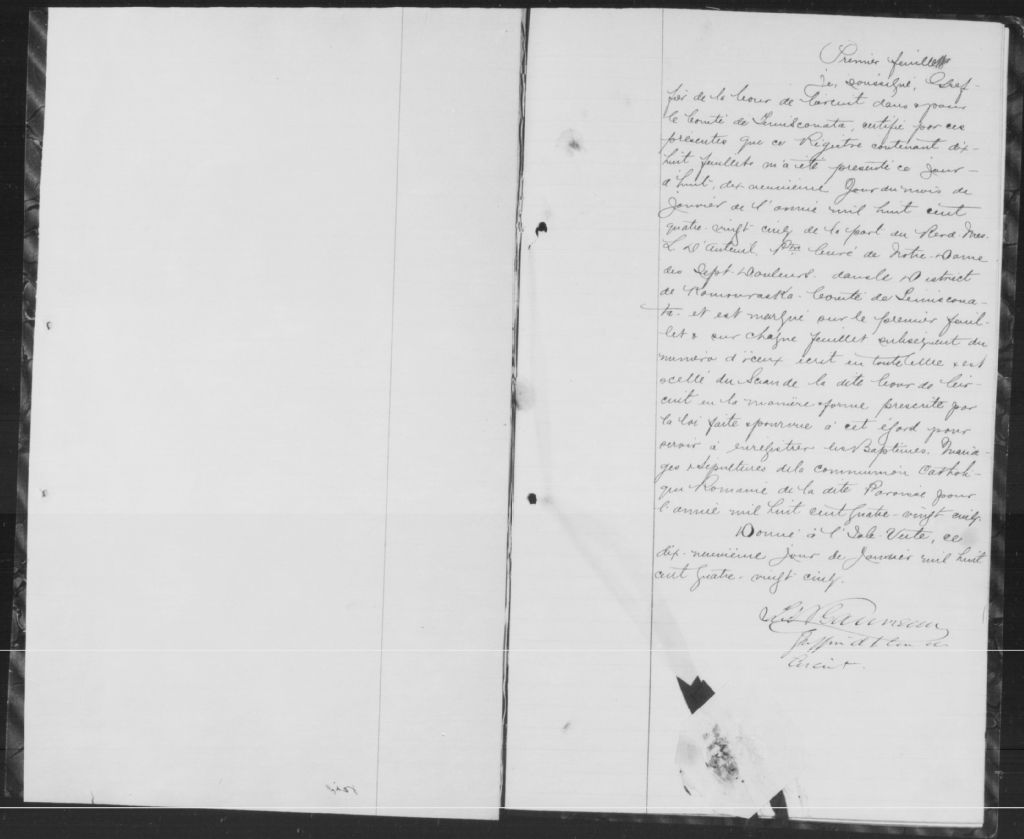 Premier feuillet
Je, soussigné, Gref-
fier de la Cour de Circuit dans & pour
le Comté de Temiscouata, certifie par ces
présentes que ce Régistre contenant dix-
huit feuillets m'a été présenté ce jour-
d'huit, dix neuvième Jour du mois de
Janvier de l'année mil huit cent
quatre-vingt cinq de la part du Revd. Mes.
L. D'Auteuil Ptre Curé de Notre-Dame
des Sept-Douleurs. dans le District
de Kamouraska. Comté de Temiscoua-
ta. et est marqué sur le premier feuil-
let & sur chaque feuillet subséquent du
numéro d'iceux écrit en toute lettre & est
scellé du Sceau de la dite Cour de Cir-
cuit en la manière & forme prescrite par
la loi faite & pourvue à cet égard pour
servir à enregistrer les Baptêmes. Maria-
ges & Sépultures de la communion Catholi-
que Romaine de la dite Paroisse pour
l'année mil huit cent quatre-vingt cinq.
Donné à l'Isle-Verte, ce
dix-neuvième jour de Janvier mil huit
cent quatre-vingt cinq.
Gauvreau
Greffier de la Cour de
Circuit.